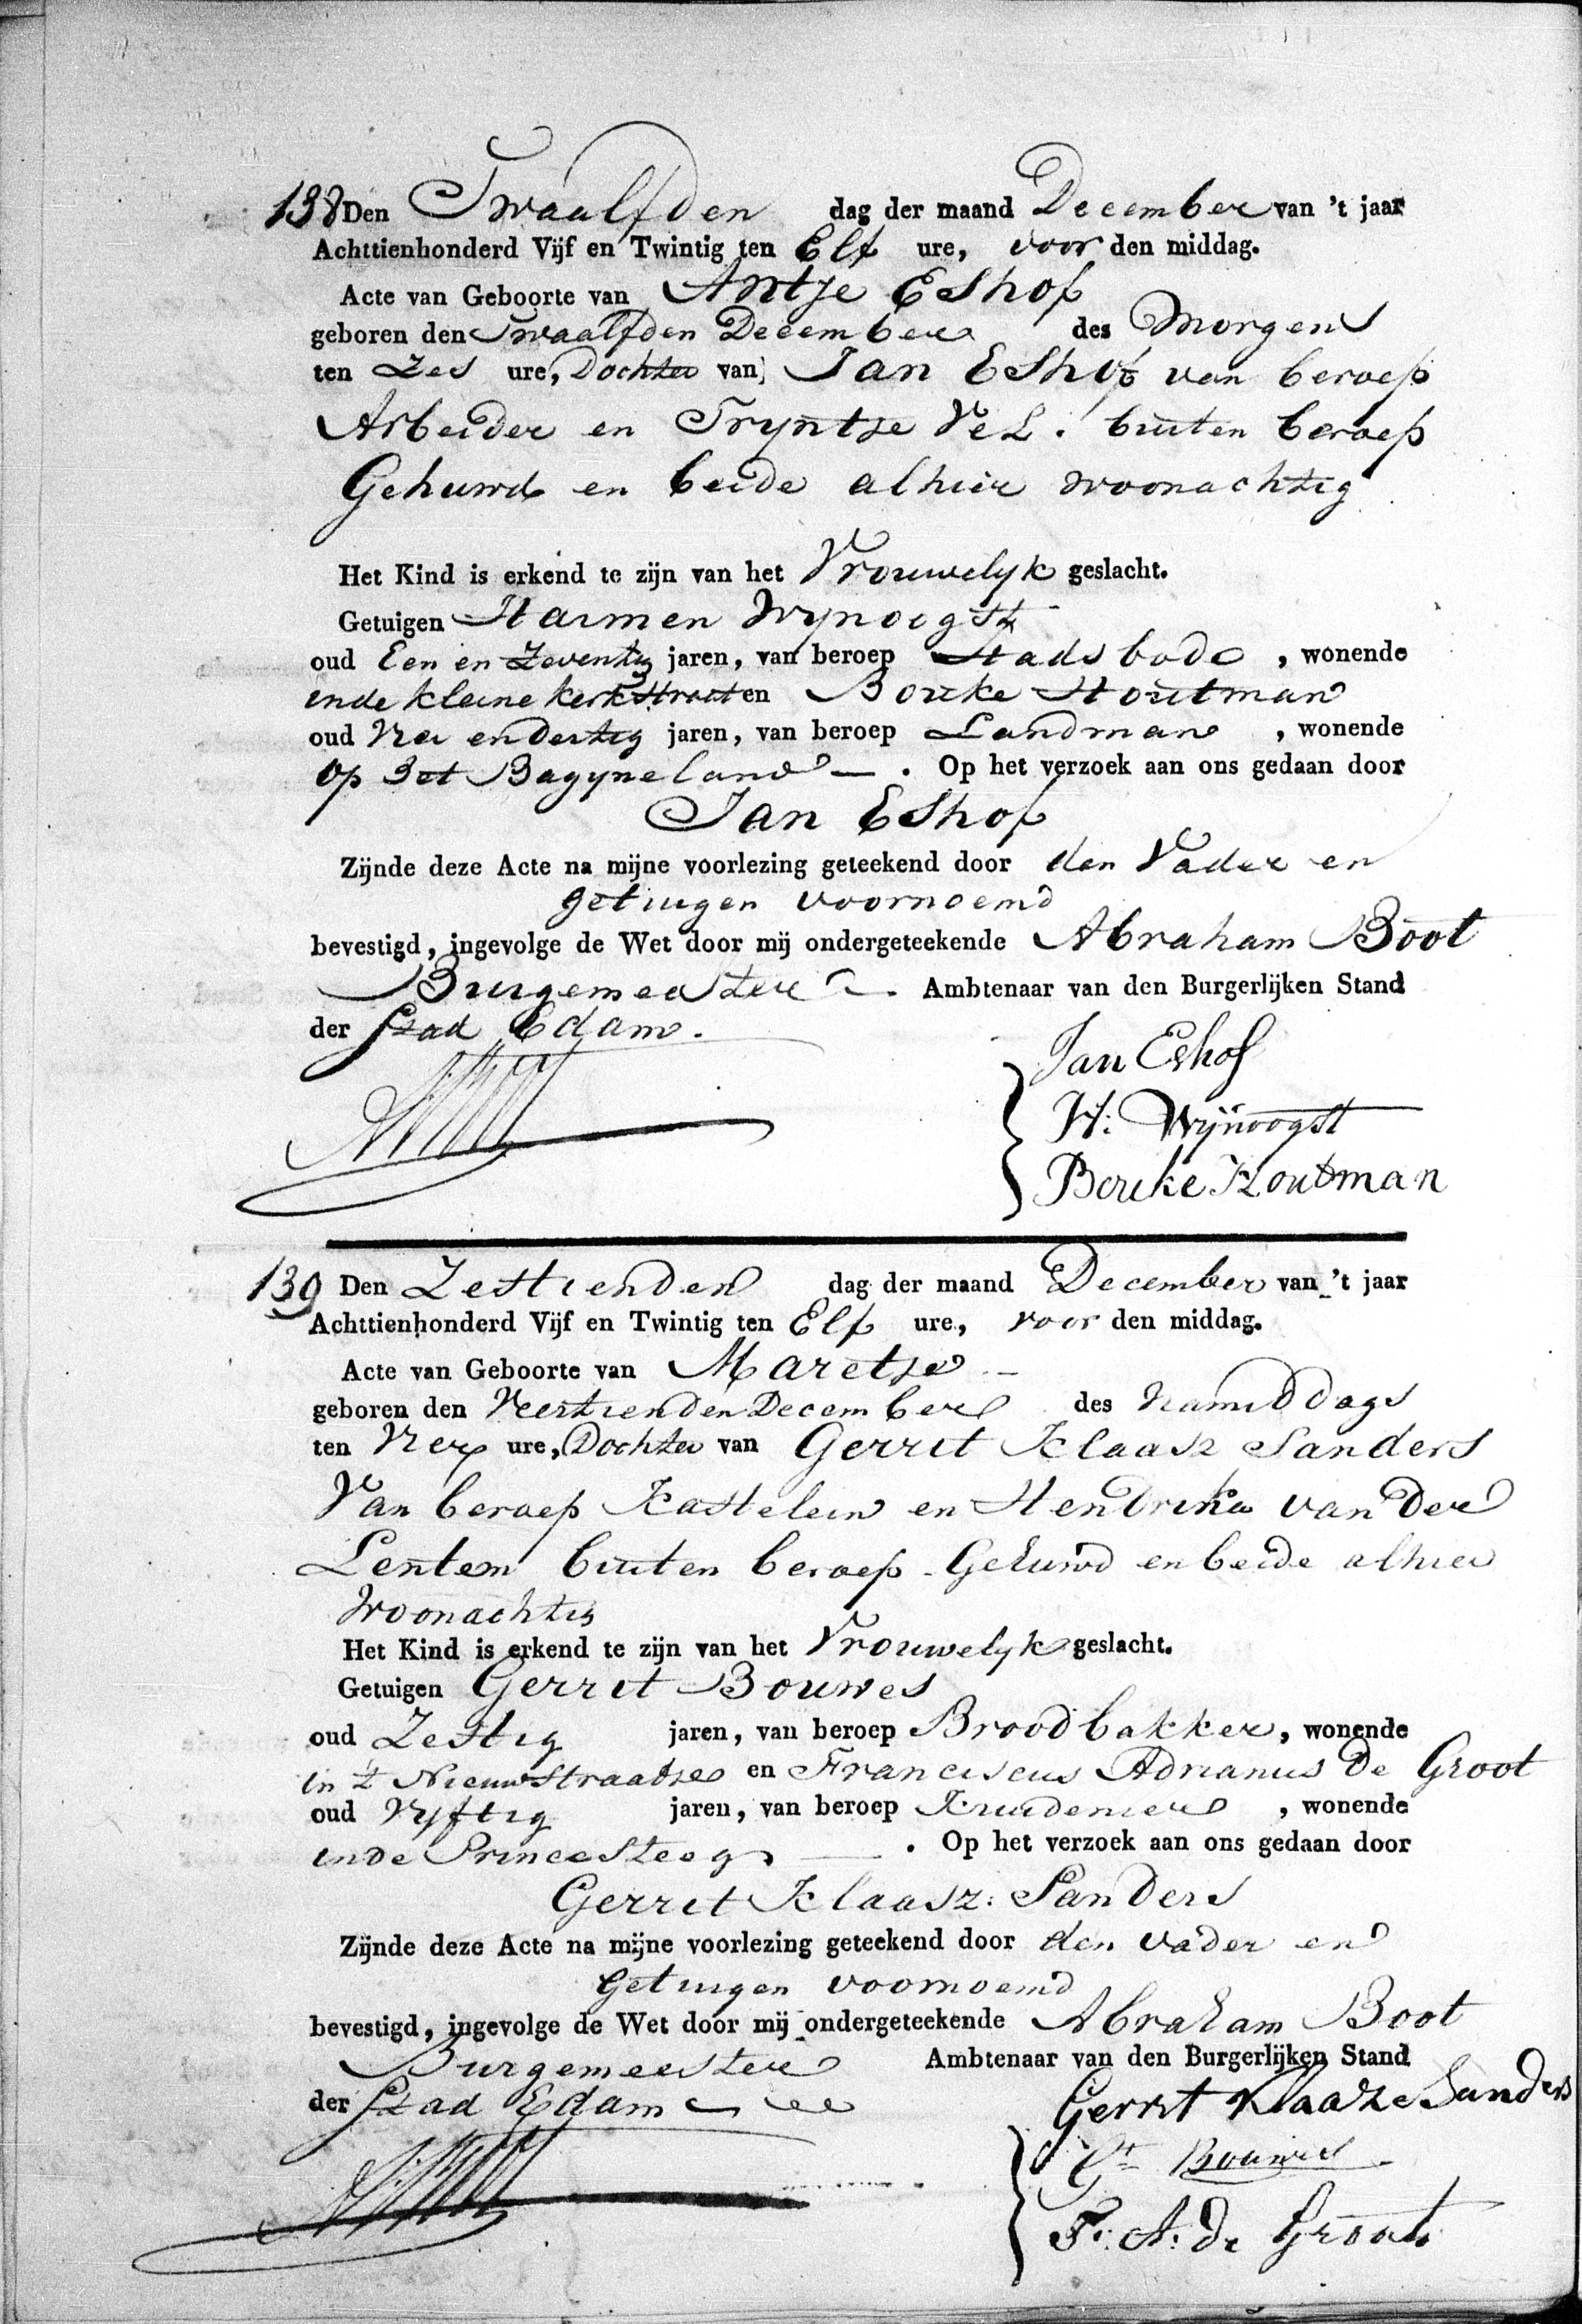 138 Den Twaalfden dag der maand December van 't jaar
Achttienhonderd Vijf en Twintig ten Elf ure, voor den middag.
Acte van Geboorte van Antje Eshof
geboren den Twaalfden December des Morgens
ten Zes ure, Dochter van Jan Eshof van beroep
Arbeider en Tryntje Vel. buiten beroep
Gehuwd en beide alhier woonachtig
Het Kind is erkend te zijn van het Vrouwelyk geslacht.
Getuigen Harmen Wynoogst
oud Een en Zeventig jaren, van beroep Stads bode, wonende
in de kleine kerkstraat en Bouke Houtman
oud Vier en dertig jaren, van beroep Landman, wonende
op Het Bagyneland —. Op het verzoek aan ons gedaan door
Jan Eshof
Zijnde deze Acte na mijne voorlezing geteekend door den Vader en
getuigen voornoemd
bevestigd, ingevolge de Wet door mij ondergeteekende Abraham Boot
Burgemeester —. Ambtenaar van den Burgerlijken Stand
der Stad Edam.
Jan Eshof
H: Wijnoogst
Bouke Houtman
139 Den Zestienden dag der maand December van 't jaar
Achttienhonderd Vijf en Twintig ten Elf ure, voor den middag.
Acte van Geboorte van Maretje —
geboren den Veertienden December des Namiddags
ten Vier ure, Dochter van Gerrit Klaasz Sanders
Van beroep Kastelein en Hendrika van der
Lentem buiten beroep. Gehuwd en beide alhier
Woonachtig
Het Kind is erkend te zijn van het Vrouwelyk geslacht.
Getuigen Gerrit Bouwes
oud Zestig jaren, van beroep Broodbakker, wonende
in 't Nieuwstraatje en Franciscus Adrianus De Groot
oud Vyftig jaren, van beroep Kruidenier, wonende
in de Princesteeg —. Op het verzoek aan ons gedaan door
Gerrit Klaasz: Sanders
Zijnde deze Acte na mijne voorlezing geteekend door den vader en
Getuigen voornoemd
bevestigd, ingevolge de Wet door mij ondergeteekende Abraham Boot
Burgemeester Ambtenaar van den Burgerlijken Stand
der Stad Edam
Gerrit Klaasze Sanders
Gt Bouwes
F: A: de Groot